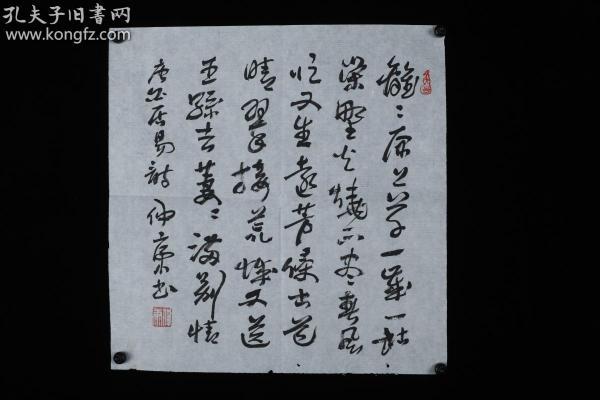 孔夫子旧书网
www.kongfz.com
離〻原上草一歲一枯
榮野火燒不盡春風
吹又生遠芳侵古道
晴翠接荒城又送
王孫去萋〻滿別情
唐白居易詩 书